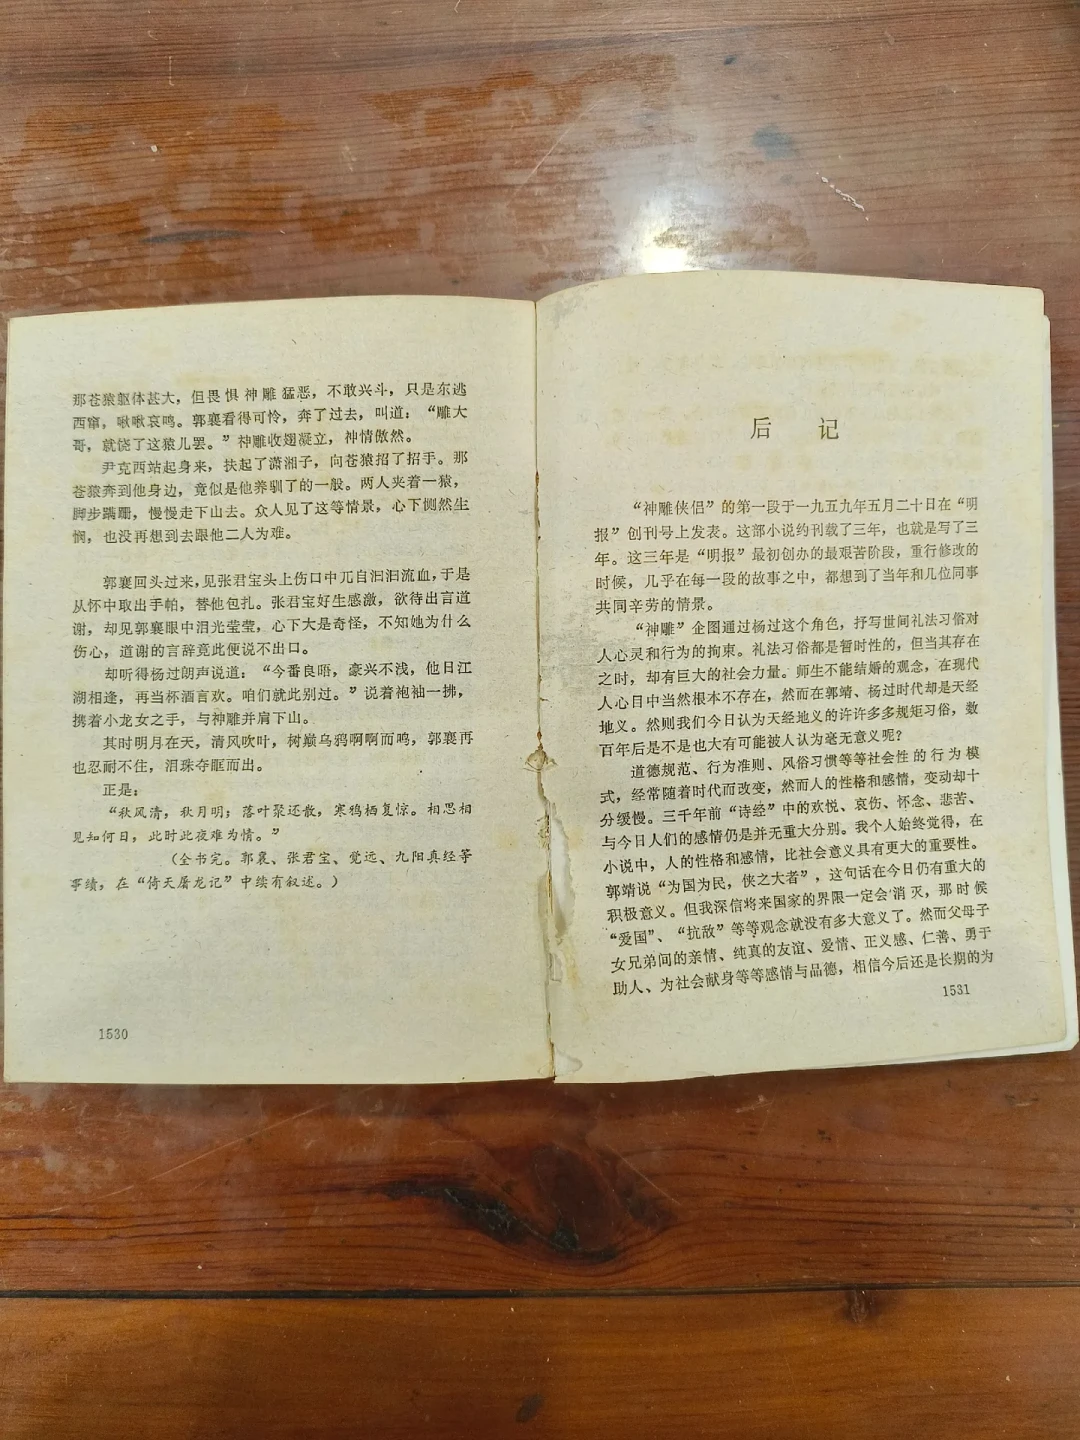 那苍猿躯体甚大，但畏惧神雕猛恶，不敢兴斗，只是东逃
西窜，啾啾哀鸣。郭襄看得可怜，奔了过去，叫道：“雕大
哥，就饶了这猿儿罢。”神雕收翅凝立，神情傲然。
尹克西站起身来，扶起了潇湘子，向苍猿招了招手。那
苍猿奔到他身边，竟似是他养驯了的一般。两人夹着一猿，
脚步蹒跚，慢慢走下山去。众人见了这等情景，心下恻然生
悯，也没再想到去跟他二人为难。
郭襄回头过来，见张君宝头上伤口中兀自汩汩流血，于是
从怀中取出手帕，替他包扎。张君宝好生感激，欲待出言道
谢，却见郭襄眼中泪光莹莹，心下大是奇怪，不知她为什么
伤心，道谢的言辞竟此便说不出口。
却听得杨过朗声说道：“今番良晤，豪兴不浅，他日江
湖相逢，再当杯酒言欢。咱们就此别过。”说着袍袖一拂，
携着小龙女之手，与神雕并肩下山。
其时明月在天，清风吹叶，树巅乌鸦啊啊而鸣，郭襄再
也忍耐不住，泪珠夺眶而出。
正是：
“秋风清，秋月明；落叶聚还散，寒鸦栖复惊。相思相
见知何日，此时此夜难为情。”
（全书完。郭襄、张君宝、觉远、九阳真经等
事绩，在“倚天屠龙记”中续有叙述。）
1530
后 记
“神雕侠侣”的第一段于一九五九年五月二十日在“明
报”创刊号上发表。这部小说约刊载了三年，也就是写了三
年。这三年是“明报”最初创办的最艰苦阶段，重行修改的
时候，几乎在每一段的故事之中，都想到了当年和几位同事
共同辛劳的情景。
“神雕”企图通过杨过这个角色，抒写世间礼法习俗对
人心灵和行为的拘束。礼法习俗都是暂时性的，但当其存在
之时，却有巨大的社会力量。师生不能结婚的观念，在现代
人心目中当然根本不存在，然而在郭靖、杨过时代却是天经
地义。然则我们今日认为天经地义的许许多多规矩习俗，数
百年后是不是也大有可能被人认为毫无意义呢？
道德规范、行为准则、风俗习惯等等社会性的行为模
式，经常随着时代而改变，然而人的性格和感情，变动却十
分缓慢。三千年前“诗经”中的欢悦、哀伤、怀念、悲苦、
与今日人们的感情仍是并无重大分别。我个人始终觉得，在
小说中，人的性格和感情，比社会意义具有更大的重要性。
郭靖说“为国为民，侠之大者”，这句话在今日仍有重大的
积极意义。但我深信将来国家的界限一定会消灭，那时候
“爱国”、“抗敌”等等观念就没有多大意义了。然而父母子
女兄弟间的亲情、纯真的友谊、爱情、正义感、仁善、勇于
助人、为社会献身等等感情与品德，相信今后还是长期的为
1531